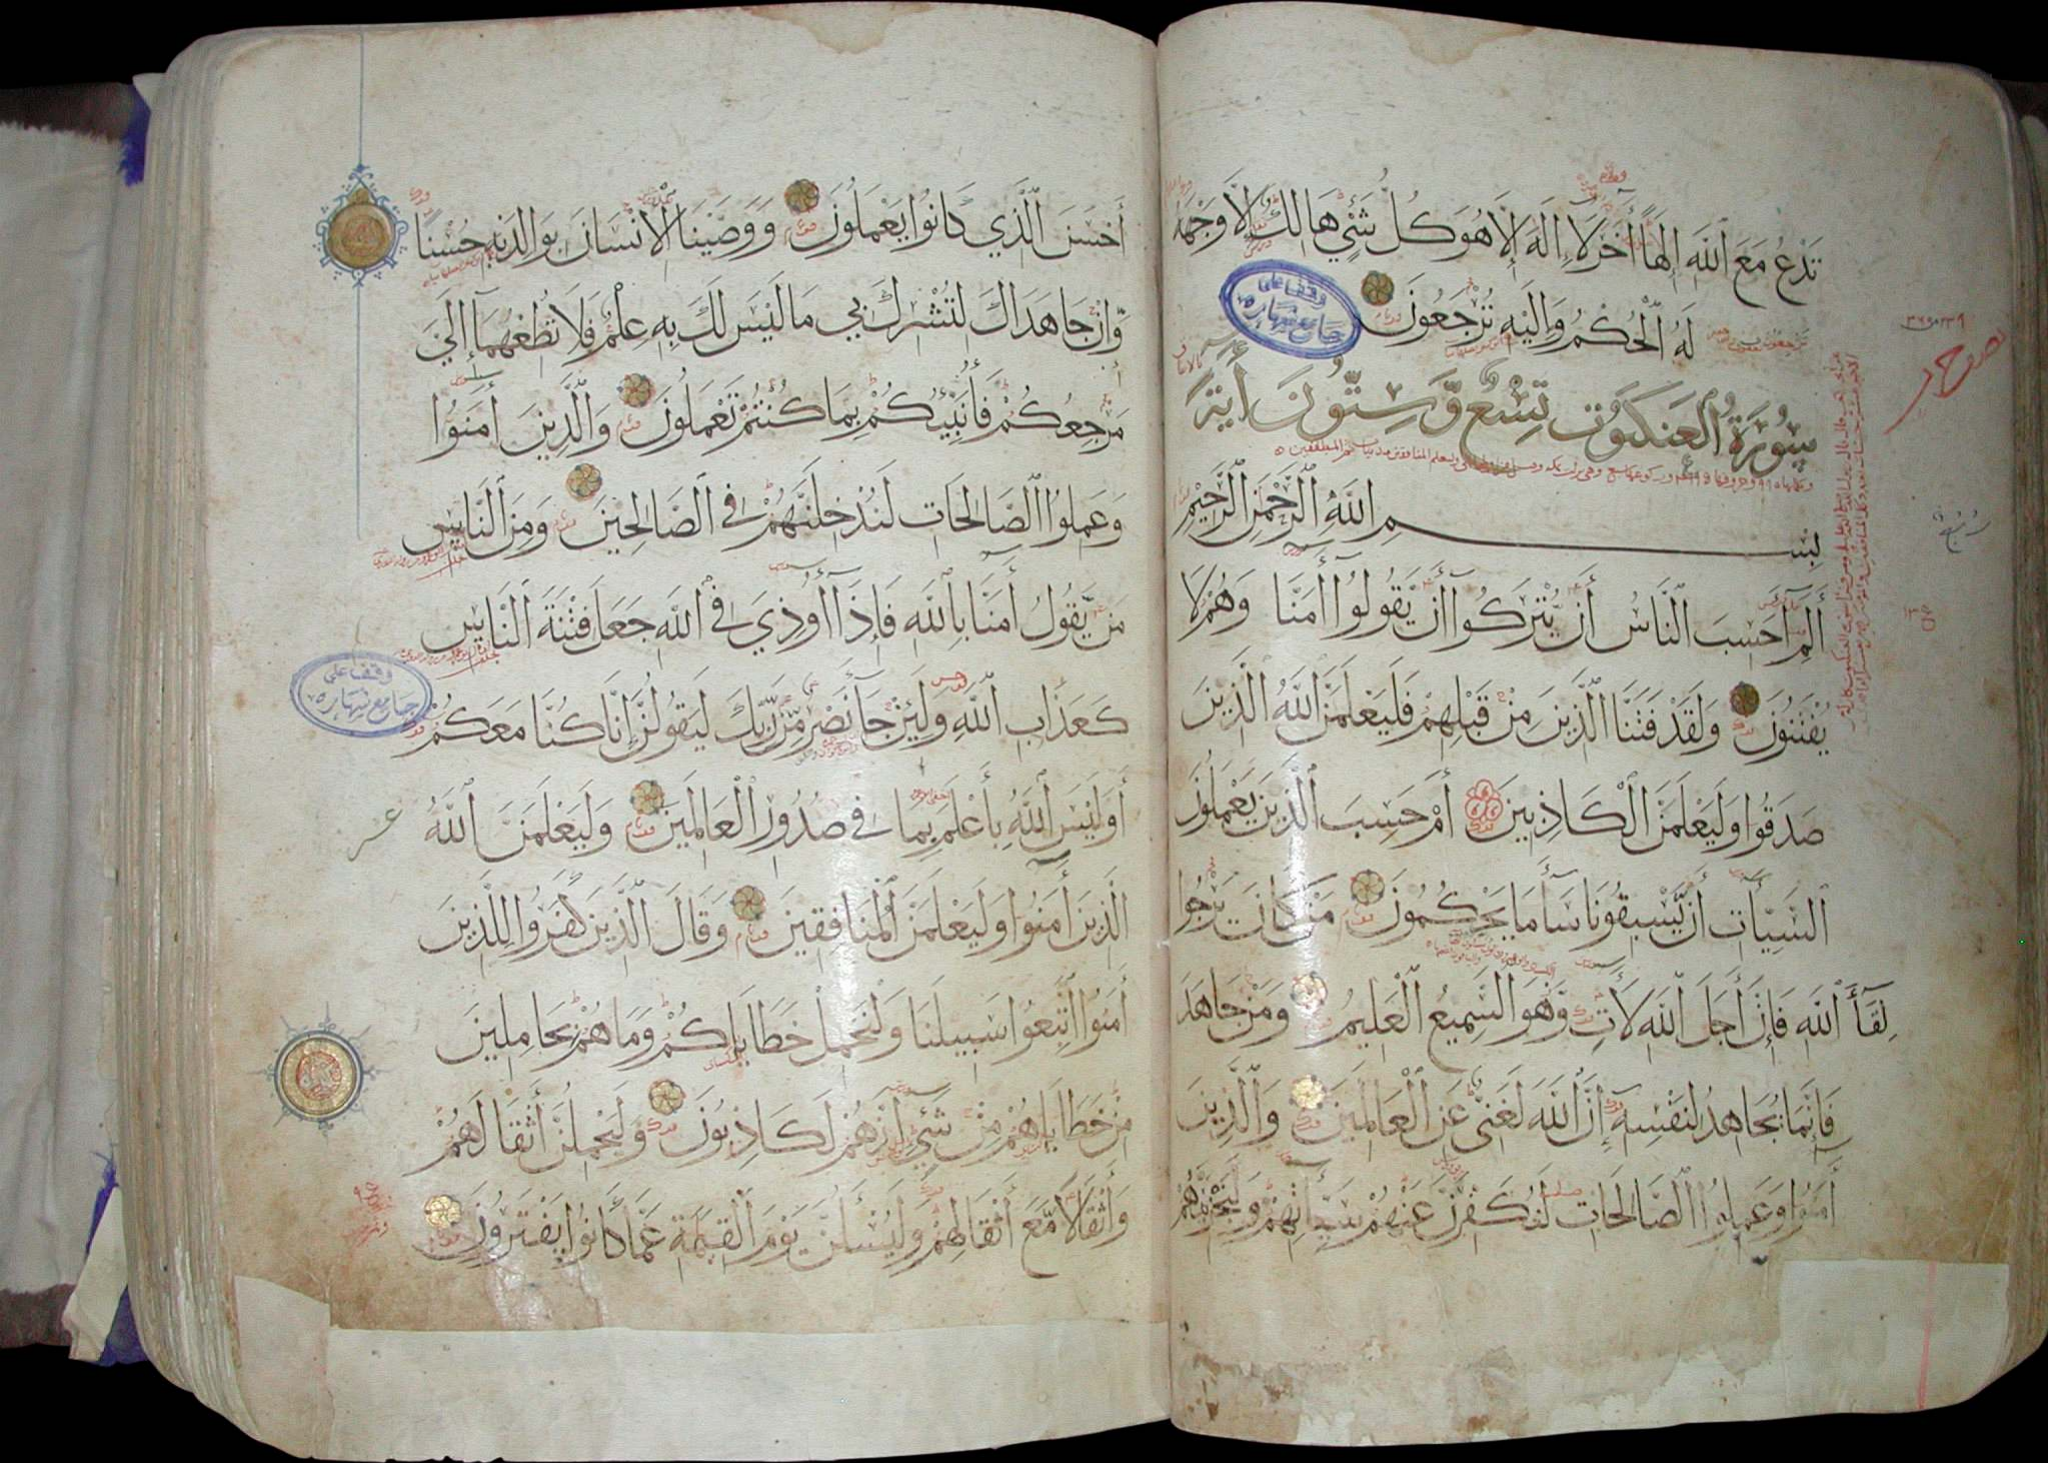 تَدْعُ مَعَ اللَّهِ إِلَهًا أَخَرَ لَا إِلَهَ إِلَّا هُوَ كُلُّ شَيْءٍ هَالِكٌ إِلَّا وَجْهَهُ
لَهُ الْحُكْمُ وَإِلَيْهِ تُرْجَعُونَ
وقف على
جامع نهاره
سُورَةُ الْعَنكَبُوتِ تِسْعٌ وَّسِتُّونَ أَيَةً
بِسْمِ اللَّهِ الرَّحْمَنِ الرَّحِيمِ
أَلَمِّ أَحَسِبَ النَّاسُ أَن يُّتْرَكُوا أَن يَّقُولُوا أَمَنَّا وَهُمْ لَا
يُفْتَنُونَ وَلَقَدْ فَتَنَّا الَّذِينَ مِنْ قَبْلِهِمْ فَلَيَعْلَمَنَّ اللَّهُ الَّذِينَ
صَدَقُوا وَلَيَعْلَمَنَّ الْكَاذِبِينَ أَمْ حَسِبَ الَّذِينَ يَعْمَلُونَ
السَّيِّأَتِ أَن يَّسْبِقُونَا سَأَ مَا يَحْكُمُونَ مَنْ كَانَ يَرْجُوا
لِقَأَ اللَّهِ فَإِنَّ أَجَلَ اللَّهِ لَأَتٍ وَهُوَ السَّمِيعُ الْعَلِيمُ وَمَنْ جَاهَدَ
فَإِنَّمَا يُجَاهِدُ لِنَفْسِهِ إِنَّ اللَّهَ لَغَنِيٌّ عَنِ الْعَالَمِينَ وَالَّذِينَ
أَمَنُوا وَعَمِلُوا الصَّالِحَاتِ لَنُكَفِّرَنَّ عَنْهُمْ سَيِّأَتِهِمْ وَلَنَجْزِيَنَّهُمْ
أَحْسَنَ الَّذِي كَانُوا يَعْمَلُونَ وَوَصَّيْنَا الْإِنْسَانَ بِوَالِدَيْهِ حُسْنًا
وَّإِنْ جَاهَدَاكَ لِتُشْرِكَ بِي مَا لَيْسَ لَكَ بِهِ عِلْمٌ فَلَا تُطِعْهُمَا إِلَيَّ
مَرْجِعُكُمْ فَأُنَبِّئُكُمْ بِمَا كُنْتُمْ تَعْمَلُونَ وَالَّذِينَ أَمَنُوا
وَعَمِلُوا الصَّالِحَاتِ لَنُدْخِلَنَّهُمْ فِي الصَّالِحِينَ وَمِنَ النَّاسِ
مَن يَّقُولُ أَمَنَّا بِاللَّهِ فَإِذَا أُوذِيَ فِي اللَّهِ جَعَلَ فِتْنَةَ النَّاسِ
كَعَذَابِ اللَّهِ وَلَئِنْ جَأَ نَصْرٌ مِّن رَّبِّكَ لَيَقُولُنَّ إِنَّا كُنَّا مَعَكُمْ
وقف على
جامع نهاره
أَوَلَيْسَ اللَّهُ بِأَعْلَمَ بِمَا فِي صُدُورِ الْعَالَمِينَ وَلَيَعْلَمَنَّ اللَّهُ
الَّذِينَ أَمَنُوا وَلَيَعْلَمَنَّ الْمُنَافِقِينَ وَقَالَ الَّذِينَ كَفَرُوا لِلَّذِينَ
أَمَنُوا اتَّبِعُوا سَبِيلَنَا وَلْنَحْمِلْ خَطَايَاكُمْ وَمَا هُمْ بِحَامِلِينَ
مِنْ خَطَايَاهُمْ مِنْ شَيْءٍ إِنَّهُمْ لَكَاذِبُونَ وَلَيَحْمِلُنَّ أَثْقَالَهُمْ
وَأَثْقَالًا مَّعَ أَثْقَالِهِمْ وَلَيُسْأَلُنَّ يَوْمَ الْقِيَمَةِ عَمَّا كَانُوا يَفْتَرُونَ